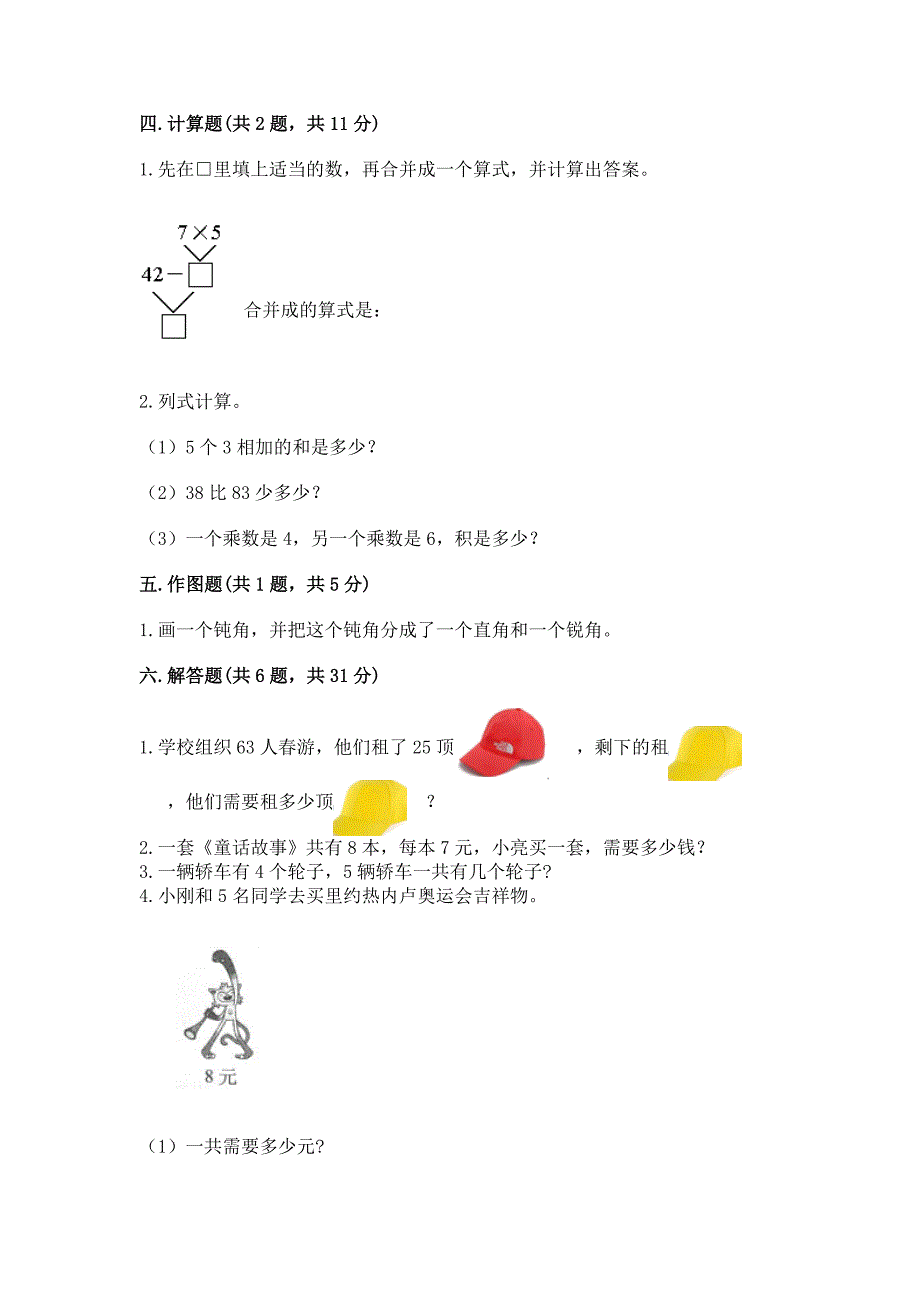 四.计算题(共2题，共11分)
1.先在□里填上适当的数，再合并成一个算式，并计算出答案。
7×5
42－□
□ 合并成的算式是：
2.列式计算。
（1）5个3相加的和是多少？
（2）38比83少多少？
（3）一个乘数是4，另一个乘数是6，积是多少？
五.作图题(共1题，共5分)
1.画一个钝角，并把这个钝角分成了一个直角和一个锐角。
六.解答题(共6题，共31分)
1.学校组织63人春游，他们租了25顶 ，剩下的租
，他们需要租多少顶 ？
2.一套《童话故事》共有8本，每本7元，小亮买一套，需要多少钱？
3.一辆轿车有4个轮子，5辆轿车一共有几个轮子?
4.小刚和5名同学去买里约热内卢奥运会吉祥物。
8元
（1）一共需要多少元?